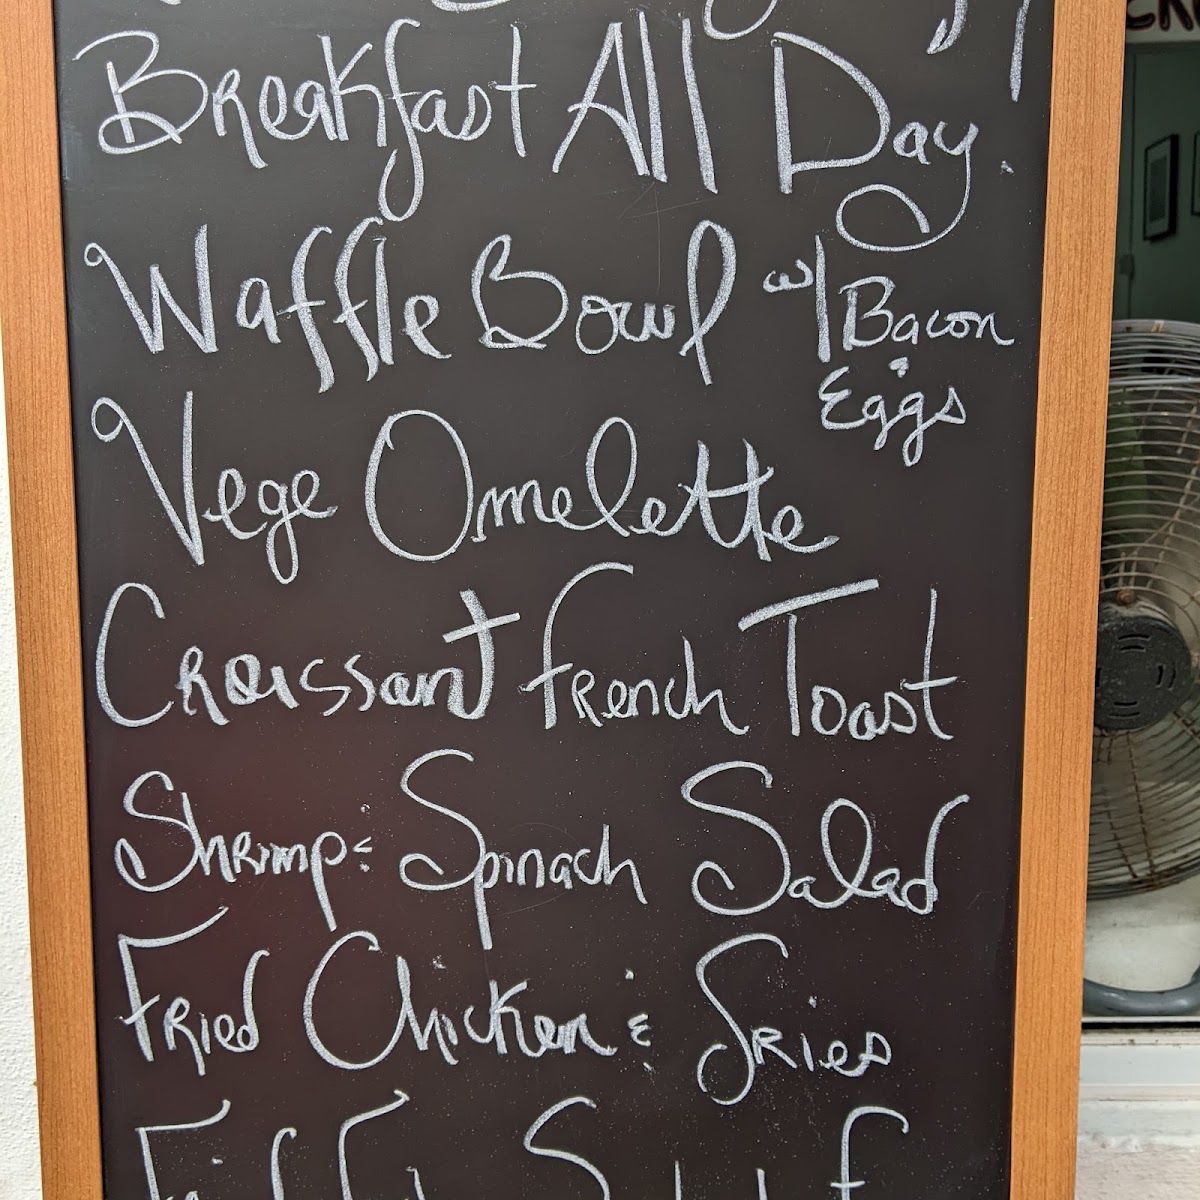 Breakfast All Day!
Waffle Bowl w/ Bacon
& Eggs
Vege Omelette
Croissant French Toast
Shrimp & Spinach Salad
Fried Chicken & Fries